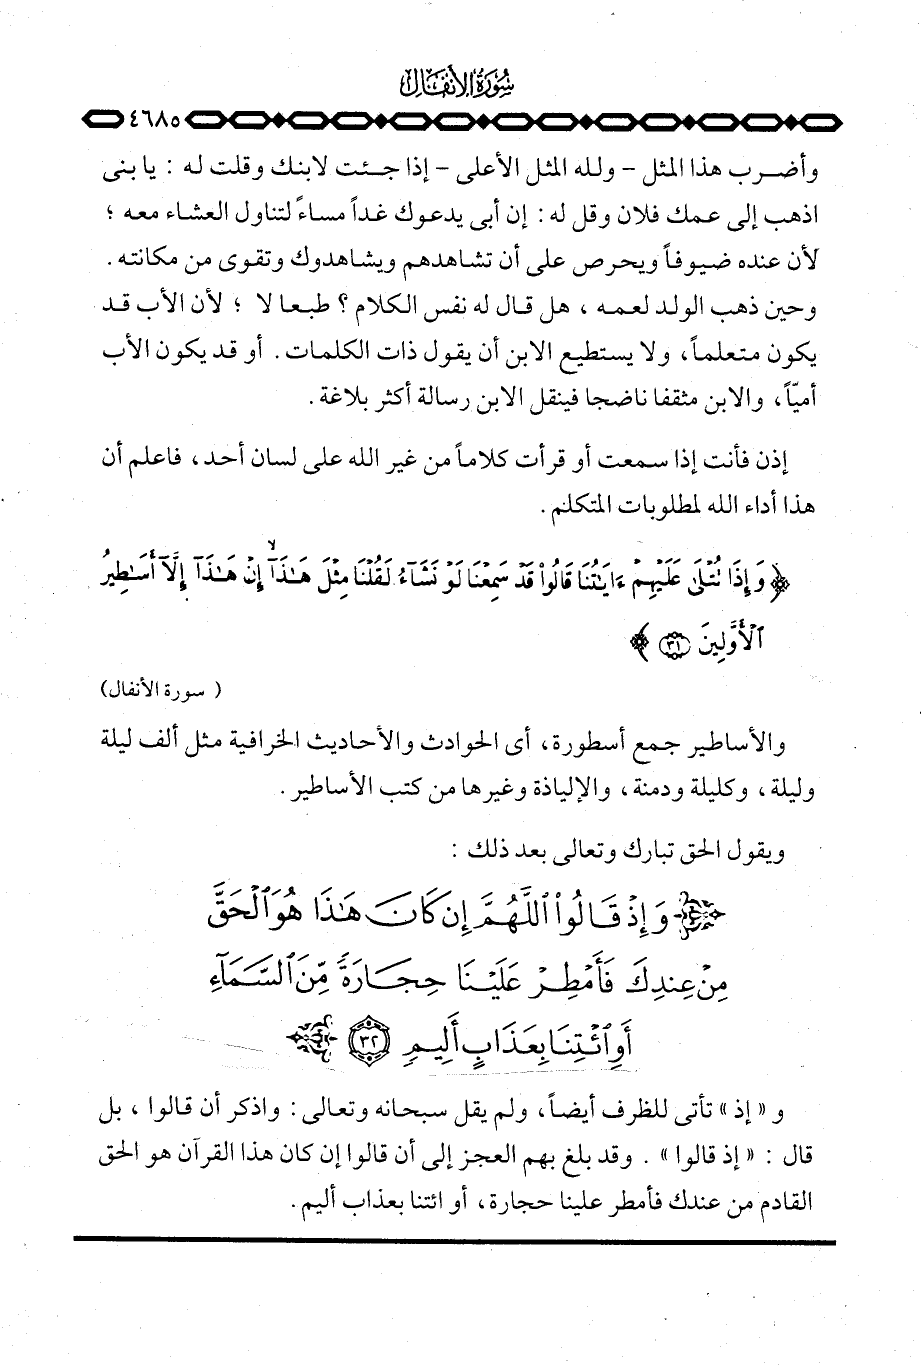 سورة الأنفال
٤٦٨٥
وأضرب هذا المثل - ولله المثل الأعلى - إذا جئت لابنك وقلت له : يا بنى
اذهب إلى عمك فلان وقل له : إن أبى يدعوك غداً مساءً لتناول العشاء معه ؛
لأن عنده ضيوفاً ويحرص على أن تشاهدهم ويشاهدوك وتقوى من مكانته .
وحين ذهب الولد لعمه ، هل قال له نفس الكلام ؟ طبعا لا ؛ لأن الأب قد
يكون متعلماً ، ولا يستطيع الابن أن يقول ذات الكلمات . أو قد يكون الأب
أميّاً ، والابن مثقفا ناضجا فينقل الابن رسالة أكثر بلاغة .
إذن فأنت إذا سمعت أو قرأت كلاماً من غير الله على لسان أحد ، فاعلم أن
هذا أداء الله لمطلوبات المتكلم .
﴿ وَإِذَا تُتْلَىٰ عَلَيْهِمْ ءَايَٰتُنَا قَالُوا۟ قَدْ سَمِعْنَا لَوْ نَشَآءُ لَقُلْنَا مِثْلَ هَٰذَآ ۙ إِنْ هَٰذَآ إِلَّآ أَسَٰطِيرُ
ٱلْأَوَّلِينَ ٣١ ﴾
( سورة الأنفال )
والأساطير جمع أسطورة ، أى الحوادث والأحاديث الخرافية مثل ألف ليلة
وليلة ، وكليلة ودمنة ، والإلياذة وغيرها من كتب الأساطير .
ويقول الحق تبارك وتعالى بعد ذلك :
وَإِذْ قَالُوا۟ ٱللَّهُمَّ إِن كَانَ هَٰذَا هُوَ ٱلْحَقَّ
مِنْ عِندِكَ فَأَمْطِرْ عَلَيْنَا حِجَارَةً مِّنَ ٱلسَّمَآءِ
أَوِ ٱئْتِنَا بِعَذَابٍ أَلِيمٍ ٣٢
و « إذ » تأتى للظرف أيضاً ، ولم يقل سبحانه وتعالى : واذكر أن قالوا ، بل
قال : « إذ قالوا » . وقد بلغ بهم العجز إلى أن قالوا إن كان هذا القرآن هو الحق
القادم من عندك فأمطر علينا حجارة ، أو ائتنا بعذاب أليم .